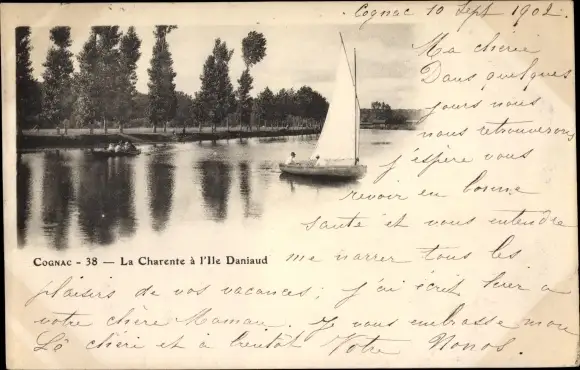 Cognac 10 Sept 1902.
Ma chérie
Dans quelques
jours nous
nous retrouverons
j'espère vous
revoir en bonne
santé et vous entendre
me narrer tous les
Cognac - 38 — La Charente à l'Ile Daniaud
plaisirs de vos vacances; j'ai écrit hier à
votre chère Maman. Je vous embrasse mon
chéri et à bientôt Votre Nonos.